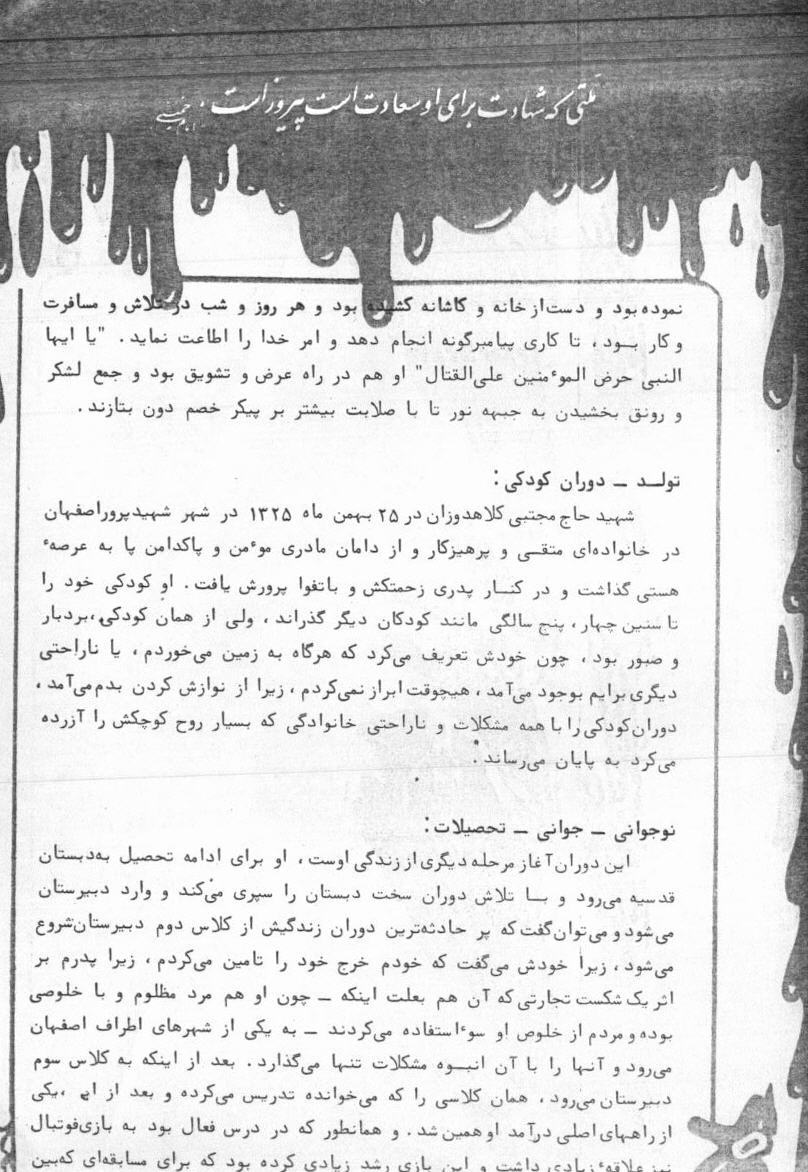 ملتی که شهادت برای او سعادت است پیروز است. امام خمینی
نموده بود و دست از خانه و کاشانه کشیده بود و هر روز و شب در تلاش و مسافرت
و کار بــود ، تا کاری پیامبرگونه انجام دهد و امر خدا را اطاعت نماید . "یا ایها
النبی حرض الموٴمنین علی‌القتال" او هم در راه عرض و تشویق بود و جمع لشکر
و رونق بخشیدن به جبهه نور تا با صلابت بیشتر بر پیکر خصم دون بتازند .
تولــد ــ دوران کودکی :
شهید حاج مجتبی کلاهدوزان در ۲۵ بهمن ماه ۱۳۲۵ در شهر شهیدپروراصفهان
در خانواده‌ای متقــی و پرهیزکار و از دامان مادری موٴمن و پاکدامن پا به عرصهٴ
هستی گذاشت و در کنــار پدری زحمتکش و باتفوا پرورش یافت . او کودکی خود را
تا سنین چهار ، پنج سالگی مانند کودکان دیگر گذراند ، ولی از همان کودکی ،بردبار
و صبور بود ، چون خودش تعریف می‌کرد که هرگاه به زمین می‌خوردم ، یا ناراحتی
دیگری برایم بوجود می‌آمد ، هیچوقت ابراز نمی‌کردم ، زیرا از نوازش کردن بدم می‌آمد ،
دوران کودکی را با همه مشکلات و ناراحتی خانوادگی که بسیار روح کوچکش را آزرده
می‌کرد به پایان می‌رساند .
نوجوانی ــ جوانی ــ تحصیلات :
این دوران آغاز مرحله دیگری از زندگی اوست ، او برای ادامه تحصیل به‌دبستان
قدسیه می‌رود و بــا تلاش دوران سخت دبستان را سپری می‌کند و وارد دبیرستان
می‌شود و می‌توان گفت که پر حادثه‌ترین دوران زندگیش از کلاس دوم دبیرستان‌شروع
می‌شود ، زیرا خودش می‌گفت که خودم خرج خود را تامین می‌کردم ، زیرا پدرم بر
اثر یک شکست تجارتی که آن هم بعلت اینکه ــ چون او هم مرد مظلوم و با خلوصی
بوده و مردم از خلوص او سوٴاستفاده می‌کردند ــ به یکی از شهرهای اطراف اصفهان
می‌رود و آنها را با آن انبــوه مشکلات تنها می‌گذارد . بعد از اینکه به کلاس سوم
دبیرستان می‌رود ، همان کلاسی را که می‌خوانده تدریس می‌کرده و بعد از ایں ،یکی
از راههای اصلی درآمد او همین شد . و همانطور که در درس فعال بود به بازی‌فوتبال
نیز علاقهٴ زیادی داشت و این بازی رشد زیادی کرده بود که برای مسابقه‌ای که‌بین